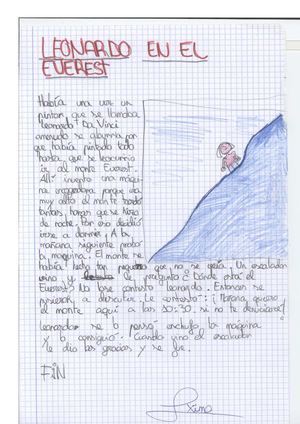 LEONARDO EN EL
EVEREST
Había una vez un
pintor que se llamaba
Leonardo Da Vinci
se aburría por
que había pintado todo
hasta que se le ocurrio
ir al monte Everest.
Allí invento una máqui
na porque era
muy alto el monte
tanto, que se hizo
de noche. Por eso decidió
irse a dormir. A la
mañana siguiente probó
la maquina. El monte se
había hecho tan pequeño que no se veía. Un escalador
vino y le pregunto ¿Dónde está el
Everest? No lo se contesto Leonardo. Entonces se
pusieron a discutir. Le contesto: ¡Mañana quiero
el monte aquí a las 10:30, si no te denunciaré!
Leonardo se lo pensó enchufo la máquina
y lo consiguió. Cuando vino el escalador
le dio las gracias y se fue.
FIN